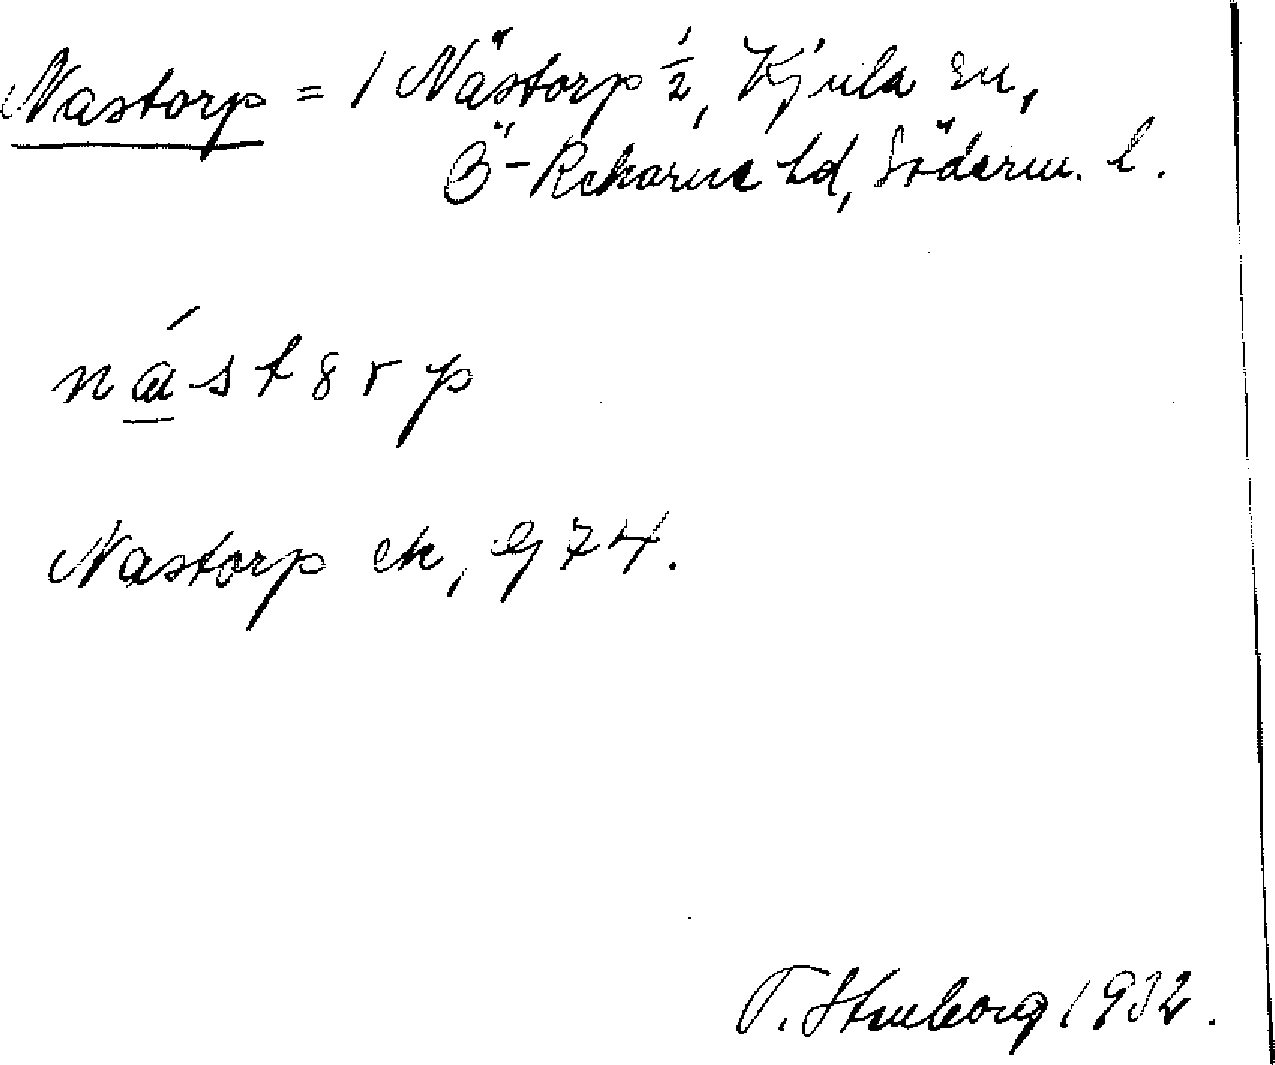 Nastorp = 1 Nästorp ½, Kjula sn,
Ö-Rekarne hd, Söderm. l.
ná̲st8rp
Nastorp ek, G 74.
T. Stenborg 1932.